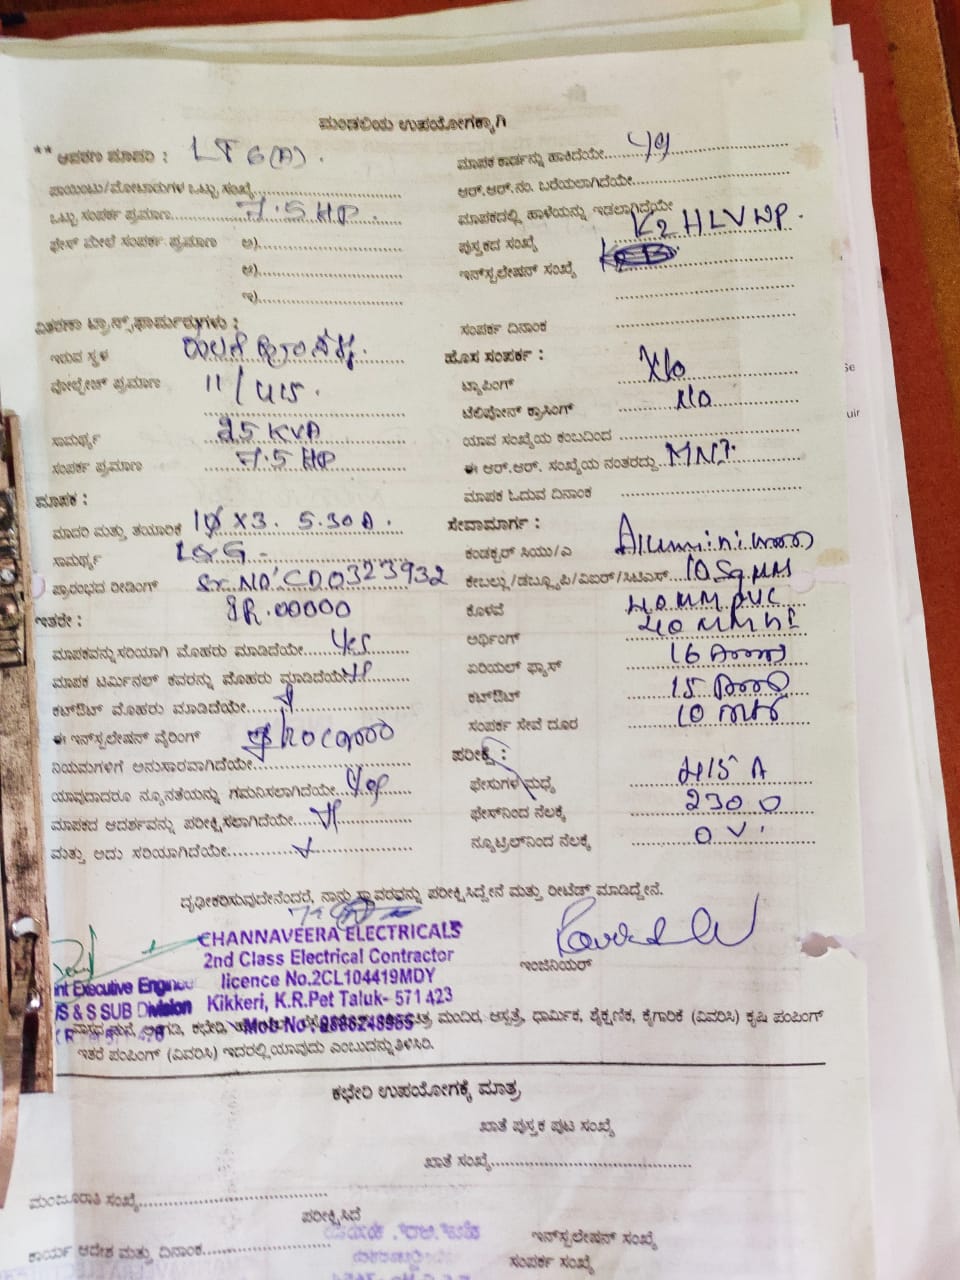 ಮಂಡಳಿಯ ಉಪಯೋಗಕ್ಕಾಗಿ
** ಆಕರಣ ಮಾದರಿ : LT 6(A).
ಪಾಯಿಂಟು/ಮೋಟಾರುಗಳ ಒಟ್ಟು ಸಂಖ್ಯೆ
ಒಟ್ಟು ಸಂಪರ್ಕ ಪ್ರಮಾಣ 7.5 HP.
ಫೇಸ್ ಮೇಲೆ ಸಂಪರ್ಕ ಪ್ರಮಾಣ ಅ)
ಆ)
ಇ)
ವಿತರಣಾ ಟ್ರಾನ್ಸ್‌ಫಾರ್ಮರುಗಳು :
ಇರುವ ಸ್ಥಳ
ವೋಲ್ಟೇಜ್ ಪ್ರಮಾಣ 11/415.
ಸಾಮರ್ಥ್ಯ 25 KVA
ಸಂಪರ್ಕ ಪ್ರಮಾಣ 7.5 HP
ಮಾಪಕ :
ಮಾದರಿ ಮತ್ತು ತಯಾರಿಕೆ 10 X3. 5.30A.
ಸಾಮರ್ಥ್ಯ L&G -
ಪ್ರಾರಂಭದ ರೀಡಿಂಗ್ Sr. NO: CD0323932
IR.00000
ಇತರೇ :
ಮಾಪಕವನ್ನು ಸರಿಯಾಗಿ ಮೊಹರು ಮಾಡಿದೆಯೇ Yes
ಮಾಪಕ ಟರ್ಮಿನಲ್ ಕವರನ್ನು ಮೊಹರು ಮಾಡಿದೆಯೆ
ಕಟ್‌ಔಟ್ ಮೊಹರು ಮಾಡಿದೆಯೇ
ಈ ಇನ್‌ಸ್ಟಲೇಷನ್ ವೈರಿಂಗ್
ನಿಯಮಗಳಿಗೆ ಅನುಸಾರವಾಗಿದೆಯೇ
ಯಾವುದಾದರೂ ನ್ಯೂನತೆಯನ್ನು ಗಮನಿಸಲಾಗಿದೆಯೇ
ಮಾಪಕದ ಆದರ್ಶವನ್ನು ಪರೀಕ್ಷಿಸಲಾಗಿದೆಯೇ
ಮತ್ತು ಅದು ಸರಿಯಾಗಿದೆಯೇ
ಮಾಪಕ ಕಾರ್ಡನ್ನು ಹಾಕಿದೆಯೇ
ಆರ್.ಆರ್.ನಂ. ಬರೆಯಲಾಗಿದೆಯೇ
ಮಾಪಕದಲ್ಲಿ ಹಾಳೆಯನ್ನು ಇಡಲಾಗಿದೆಯೇ
ಪುಸ್ತಕದ ಸಂಖ್ಯೆ K2 HLVNP.
ಇನ್‌ಸ್ಟಲೇಷನ್ ಸಂಖ್ಯೆ
ಸಂಪರ್ಕ ದಿನಾಂಕ
ಹೊಸ ಸಂಪರ್ಕ :
ಟ್ಯಾಪಿಂಗ್ No
ಟೆಲಿಫೋನ್ ಕ್ರಾಸಿಂಗ್ No
ಯಾವ ಸಂಖ್ಯೆಯ ಕಂಬದಿಂದ
ಈ ಆರ್.ಆರ್. ಸಂಖ್ಯೆಯ ನಂತರದ್ದು
ಮಾಪಕ ಓದುವ ದಿನಾಂಕ
ಸೇವಾಮಾರ್ಗ :
ಕಂಡಕ್ಟರ್ ಸಿಯು/ಎ
ಕೇಬಲ್ಲು/ಡಬ್ಲ್ಯೂಪಿ/ವಿಐಆರ್/ಸಿಟಿಎಸ್ 10 Sq.MM
ಕೊಳವೆ 40 MM PVC
ಅರ್ಥಿಂಗ್ 40 MM
ಏರಿಯಲ್ ಫ್ಯೂಸ್ 16
ಕಟ್‌ಔಟ್ 15
ಸಂಪರ್ಕ ಸೇವೆ ದೂರ 10
ಪರೀಕ್ಷೆ :
ಫೇಸುಗಳ ಮಧ್ಯೆ 415
ಫೇಸ್‌ನಿಂದ ನೆಲಕ್ಕೆ 230
ನ್ಯೂಟ್ರಲ್‌ನಿಂದ ನೆಲಕ್ಕೆ 0 V.
ದೃಢೀಕರಿಸುವುದೇನೆಂದರೆ, ನಾನು ಸ್ಥಾವರವನ್ನು ಪರೀಕ್ಷಿಸಿದ್ದೇನೆ ಮತ್ತು ರೀಟೆಡ್ ಮಾಡಿದ್ದೇನೆ.
CHANNAVEERA ELECTRICALS
2nd Class Electrical Contractor
licence No.2CL104419MDY
Kikkeri, K.R.Pet Taluk- 571 423
Mob No
ಇಂಜಿನಿಯರ್
Executive Engineer
S & S SUB Division
ಮಂದಿರ, ಆಸ್ಪತ್ರೆ, ಧಾರ್ಮಿಕ, ಶೈಕ್ಷಣಿಕ, ಕೈಗಾರಿಕೆ (ವಿವರಿಸಿ) ಕೃಷಿ ಪಂಪಿಂಗ್
ಇತರೆ ಪಂಪಿಂಗ್ (ವಿವರಿಸಿ) ಇದರಲ್ಲಿ ಯಾವುದು ಎಂಬುದನ್ನು ತಿಳಿಸಿರಿ.
ಕಛೇರಿ ಉಪಯೋಗಕ್ಕೆ ಮಾತ್ರ
ಖಾತೆ ಪುಸ್ತಕ ಪುಟ ಸಂಖ್ಯೆ
ಖಾತೆ ಸಂಖ್ಯೆ
ಮಂಜೂರಾತಿ ಸಂಖ್ಯೆ
ಪರೀಕ್ಷಿಸಿದೆ
ಕಾರ್ಯ ಆದೇಶ ಮತ್ತು ದಿನಾಂಕ
ಇನ್‌ಸ್ಟಲೇಷನ್ ಸಂಖ್ಯೆ
ಸಂಪರ್ಕ ಸಂಖ್ಯೆ